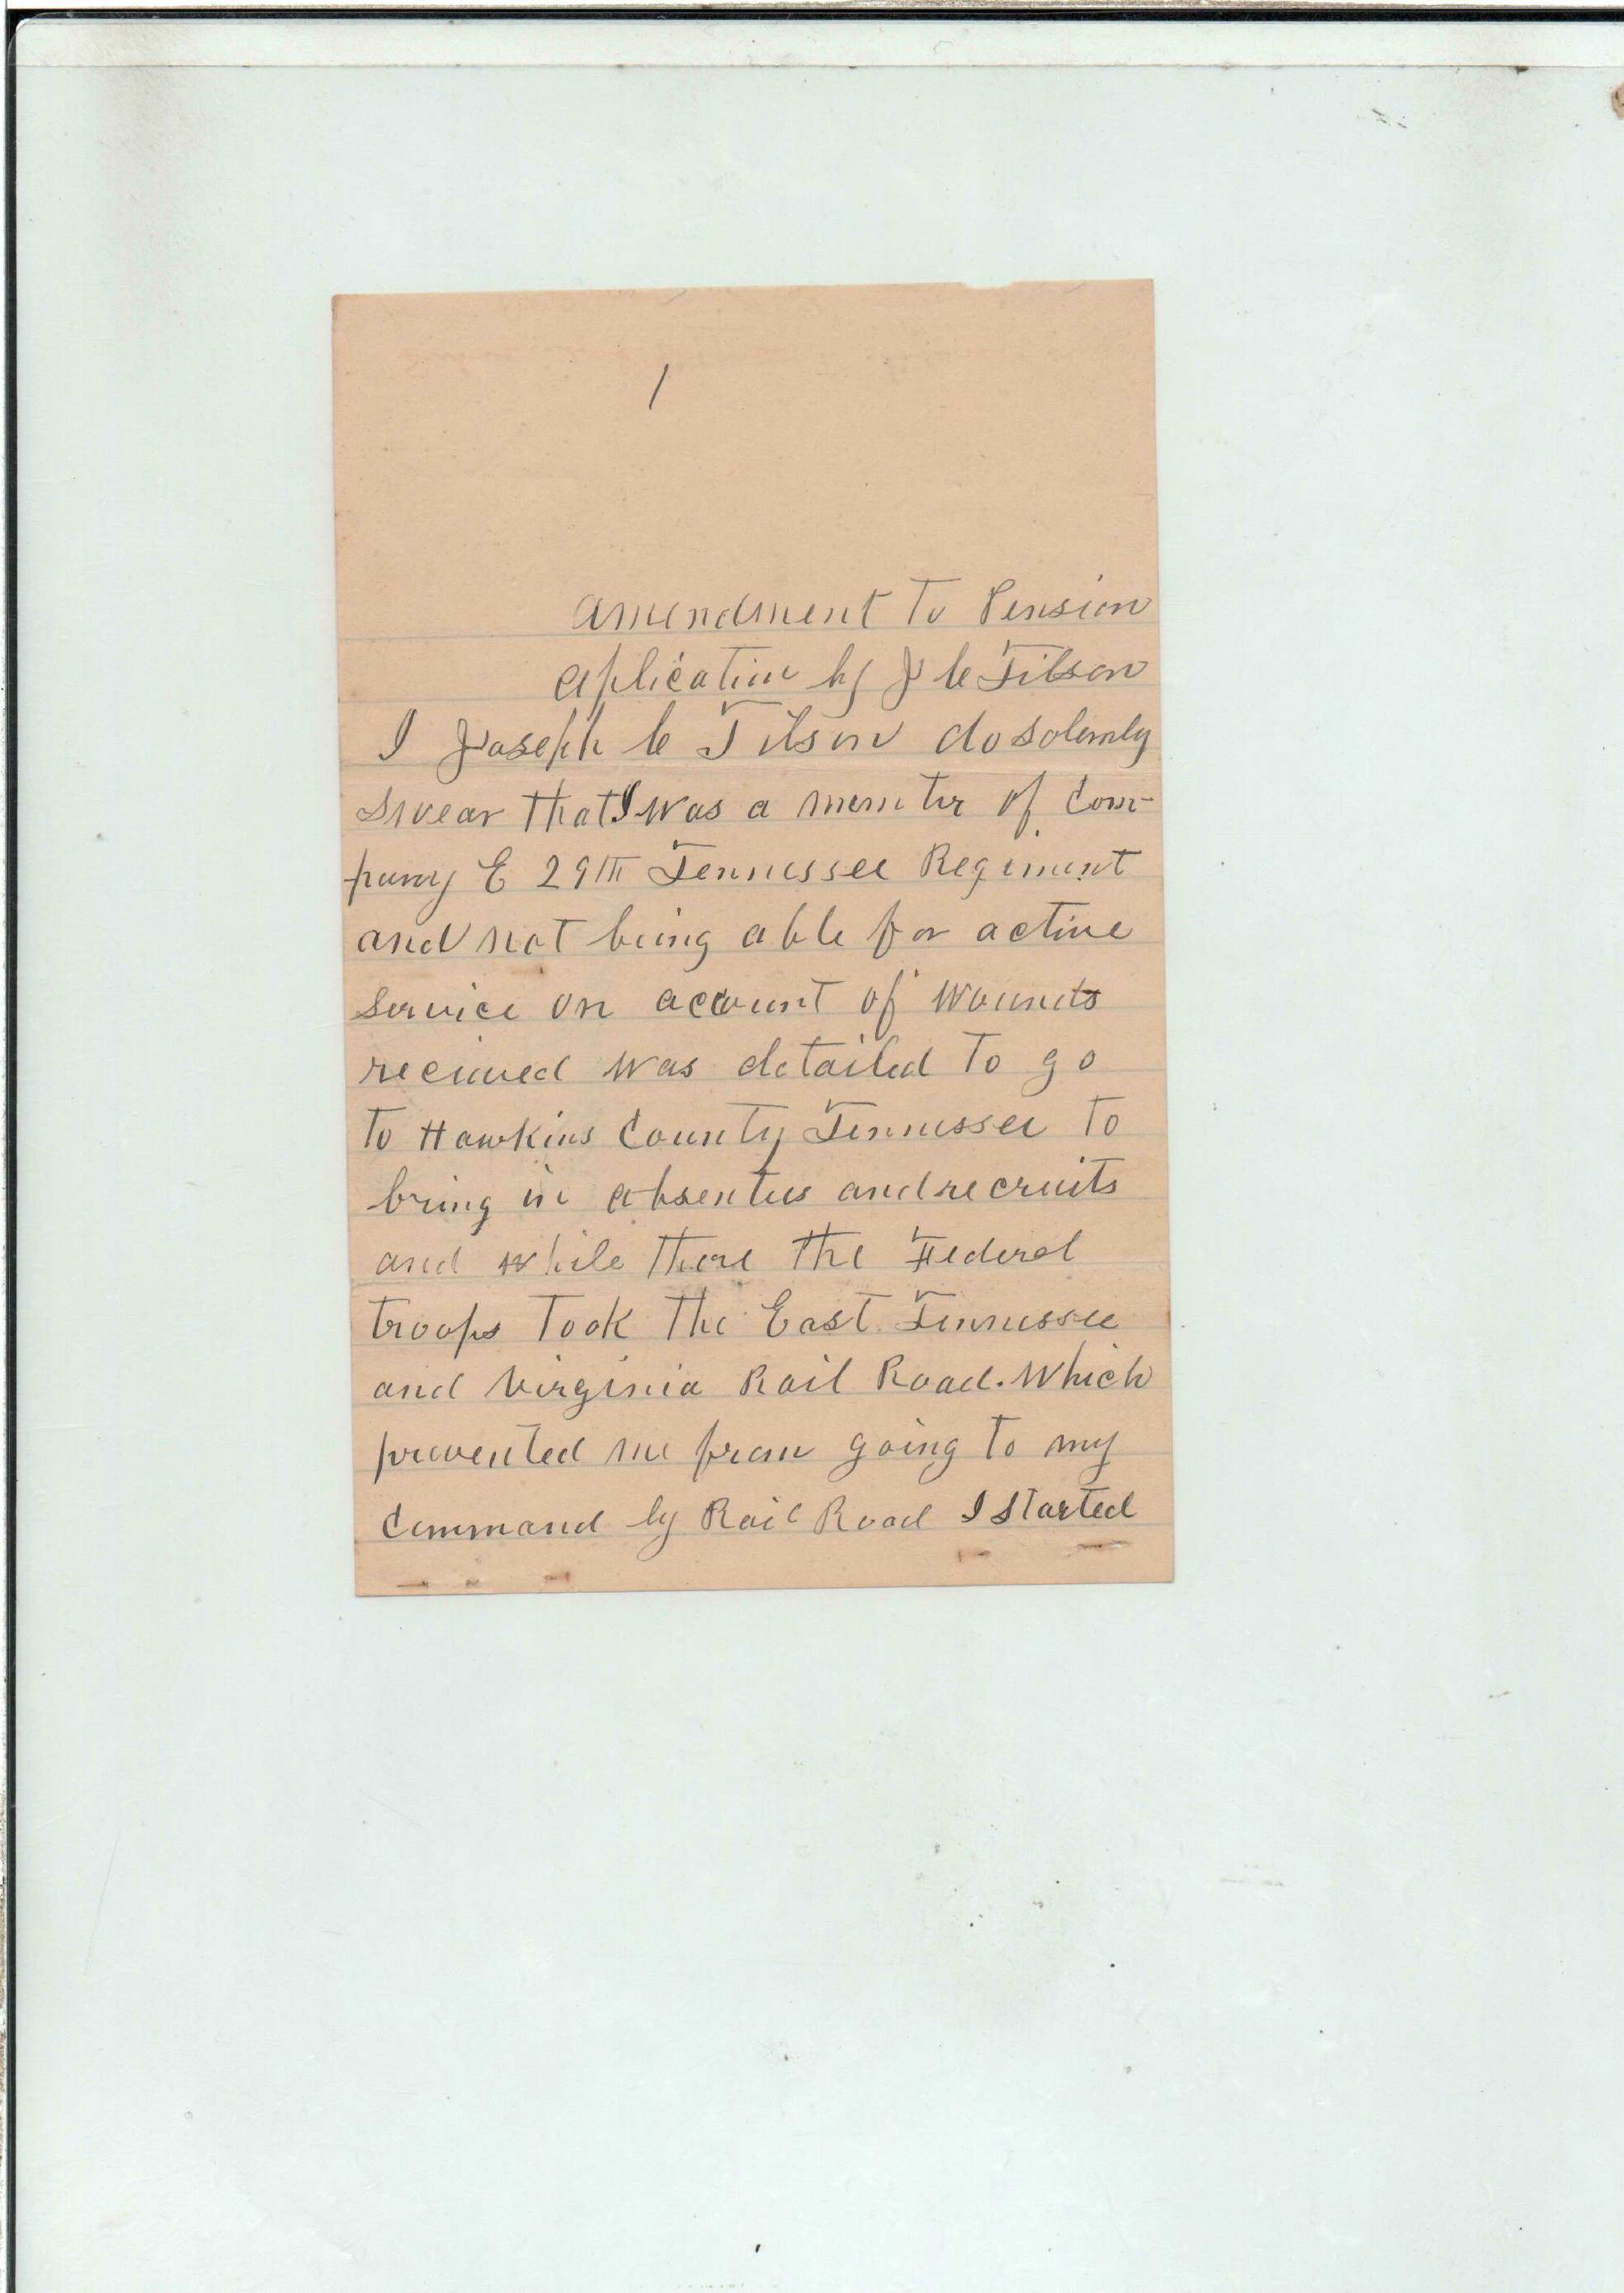 1
Amendment To Pension
Aplication by J C Tilson
I Joseph C Tilson do solemly
Swear that I was a member of Com-
pany E 29TH Tennessee Regiment
and not being able for active
Service on account of Wounds
recieved was detailed To go
To Hawkins County Tennessee To
bring in absentees and recruits
and while there the Federal
troops Took The East Tennessee
and Virginia Rail Road. Which
prevented me from going To my
Command by Rail Road I Started